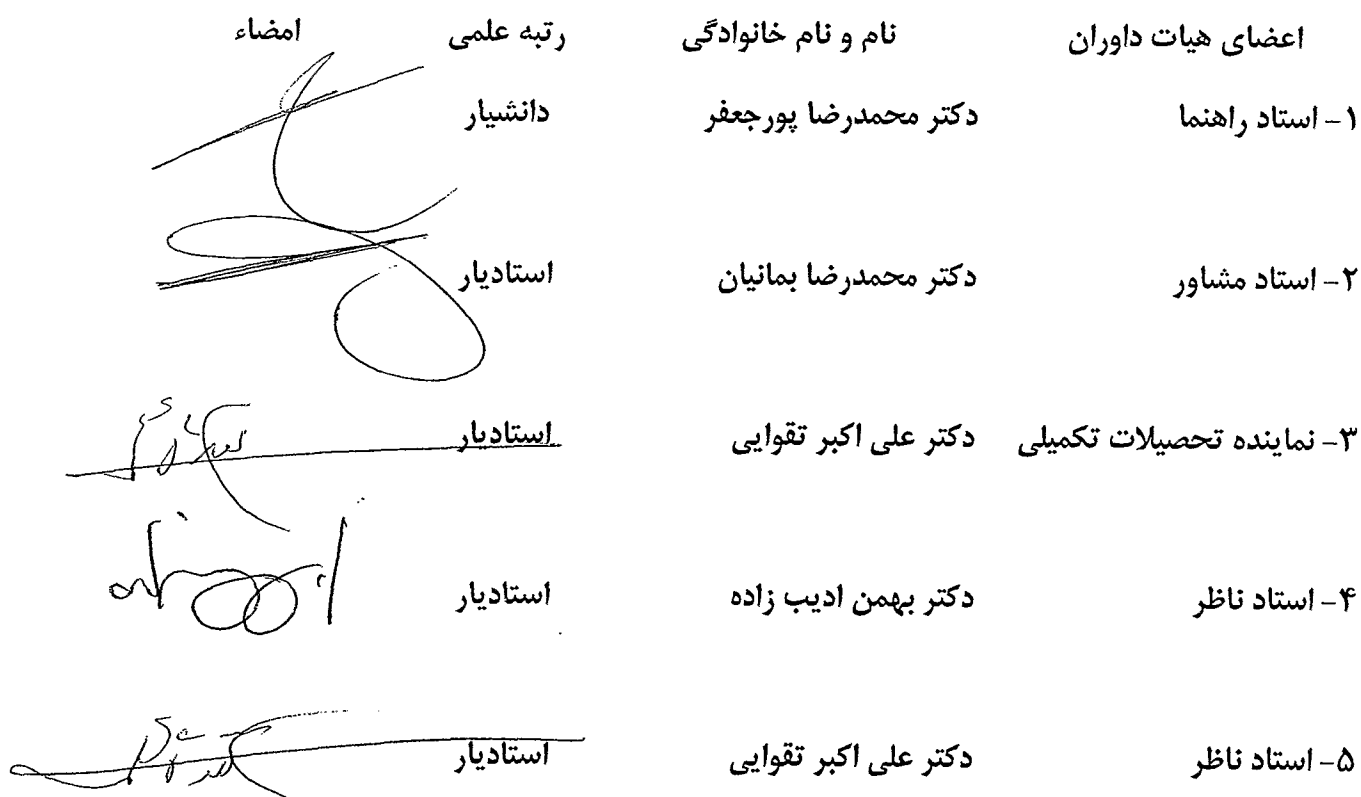 اعضای هیات داوران نام و نام خانوادگی رتبه علمی امضاء
۱- استاد راهنما دکتر محمدرضا پورجعفر دانشیار
۲- استاد مشاور دکتر محمدرضا بمانیان استادیار
۳- نماینده تحصیلات تکمیلی دکتر علی اکبر تقوایی استادیار
۴- استاد ناظر دکتر بهمن ادیب زاده استادیار
۵- استاد ناظر دکتر علی اکبر تقوایی استادیار